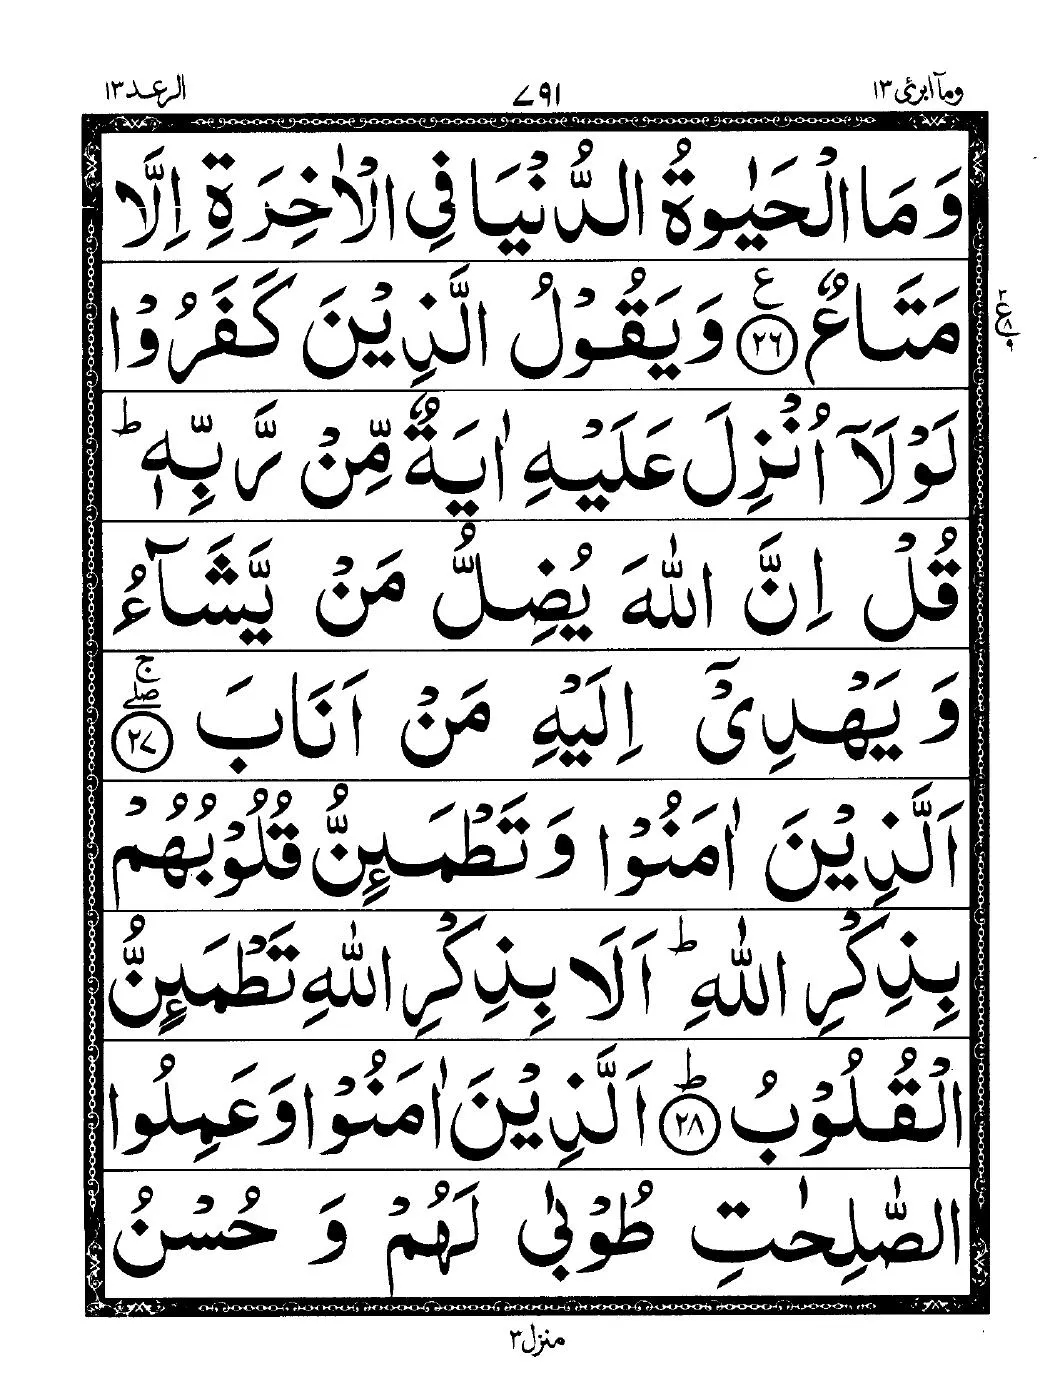 وماۤ ابرئ ١٣
٧٩١
الرعد ١٣
وَمَا الْحَيٰوةُ الدُّنْيَا فِي الْاٰخِرَةِ اِلَّا
مَتَاعٌ ﴿٢٦﴾ ع وَيَقُوْلُ الَّذِيْنَ كَفَرُوْا
لَوْلَاۤ اُنْزِلَ عَلَيْهِ اٰيَةٌ مِّنْ رَّبِّهٖ ؕ
قُلْ اِنَّ اللّٰهَ يُضِلُّ مَنْ يَّشَآءُ
وَيَهْدِيْۤ اِلَيْهِ مَنْ اَنَابَ ﴿٢٧﴾ ج صلے
اَلَّذِيْنَ اٰمَنُوْا وَتَطْمَىِٕنُّ قُلُوْبُهُمْ
بِذِكْرِ اللّٰهِ ؕ اَلَا بِذِكْرِ اللّٰهِ تَطْمَىِٕنُّ
الْقُلُوْبُ ﴿٢٨﴾ ؕ اَلَّذِيْنَ اٰمَنُوْا وَعَمِلُوا
الصّٰلِحٰتِ طُوْبٰى لَهُمْ وَحُسْنُ
٢
ع ٨
٩
منزل ٣